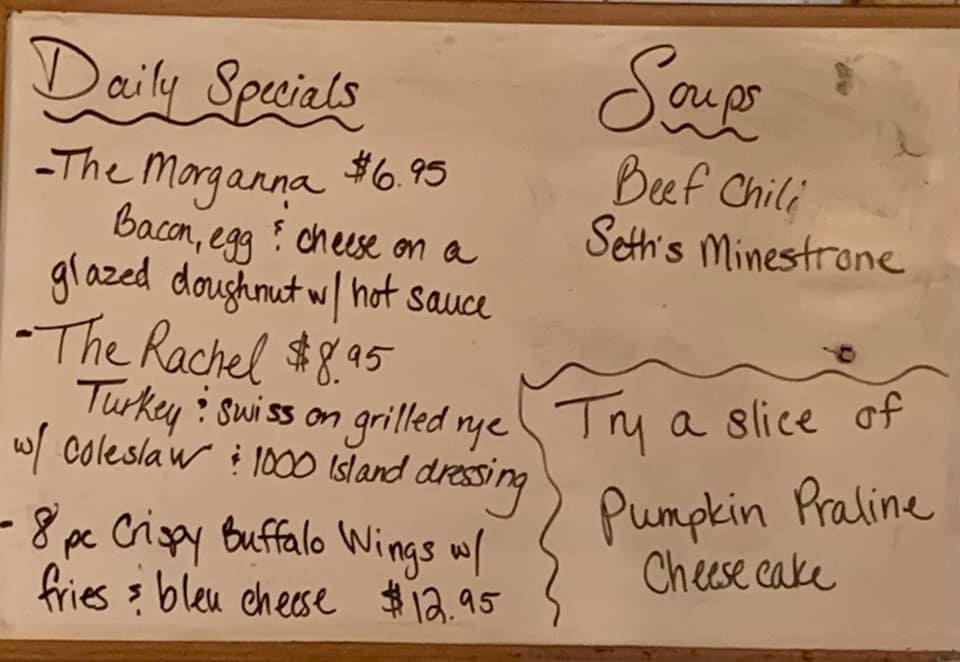 Daily Specials
- The Morganna $6.95
Bacon, egg & cheese on a
glazed doughnut w/ hot sauce
- The Rachel $8.95
Turkey & swiss on grilled rye
w/ coleslaw & 1000 Island dressing
- 8 pc Crispy Buffalo Wings w/
fries & bleu cheese $12.95
Soups
Beef Chili
Seth's Minestrone
Try a slice of
Pumpkin Praline
Cheesecake